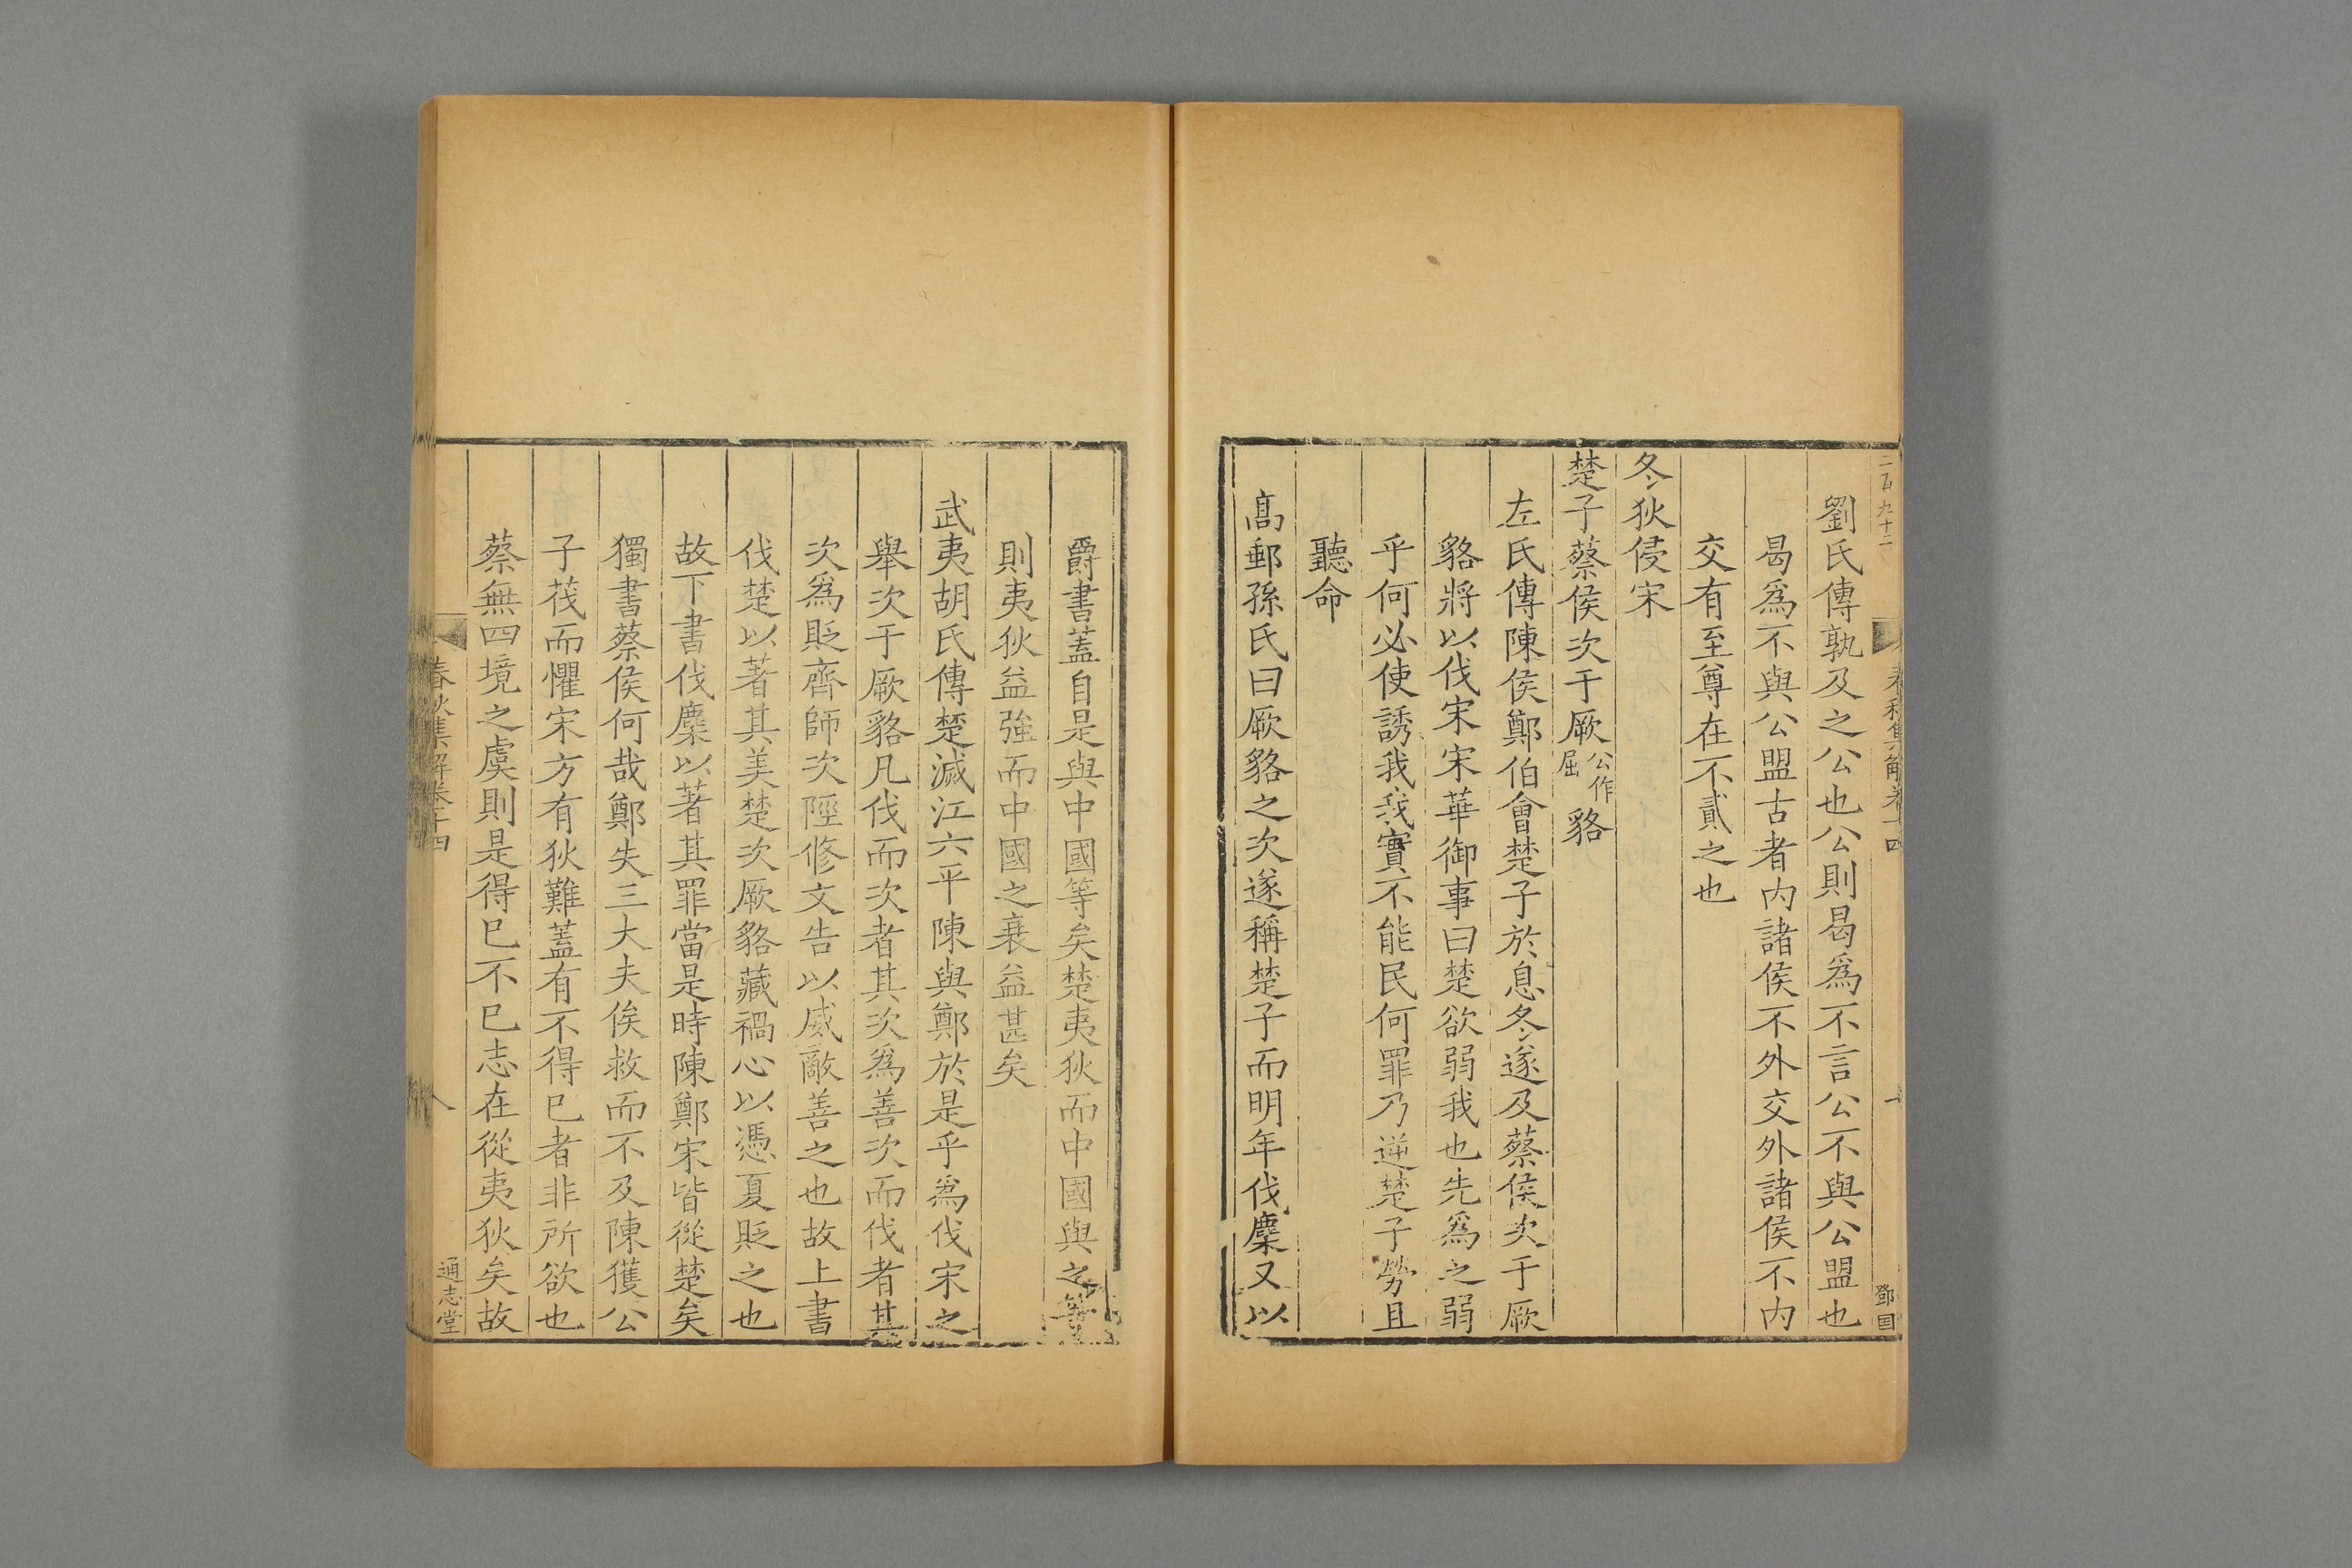 二百九十二
春秋集解卷十四
鄧国
劉氏傳孰及之公也公則曷爲不言公不與公盟也
曷爲不與公盟古者内諸侯不外交外諸侯不内
交有至尊在不貳之也
冬狄侵宋
楚子蔡侯次于厥公作屈貉
左氏傳陳侯鄭伯會楚子於息冬遂及蔡侯次于厥
貉將以伐宋宋華御事曰楚欲弱我也先爲之弱
乎何必使誘我我實不能民何罪乃逆楚子勞且
聽命
髙郵孫氏曰厥貉之次遂稱楚子而明年伐麇又以
爵書蓋自是與中國等矣楚夷狄而中國與之等
則夷狄益強而中國之衰益甚矣
武夷胡氏傳楚滅江六平陳與鄭於是乎爲伐宋之
舉次于厥貉凡伐而次者其次爲善次而伐者其
次爲貶齊師次陘修文告以威敵善之也故上書
伐楚以著其美楚次厥貉藏禍心以憑夏貶之也
故下書伐麇以著其罪當是時陳鄭宋皆從楚矣
獨書蔡侯何哉鄭失三大夫俟救而不及陳獲公
子茷而懼宋方有狄難蓋有不得已者非所欲也
蔡無四境之虞則是得已不已志在從夷狄矣故
春秋集解卷十四
八
通志堂